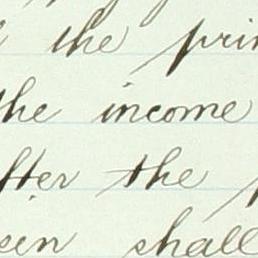 the prin
the income
after the
een shall